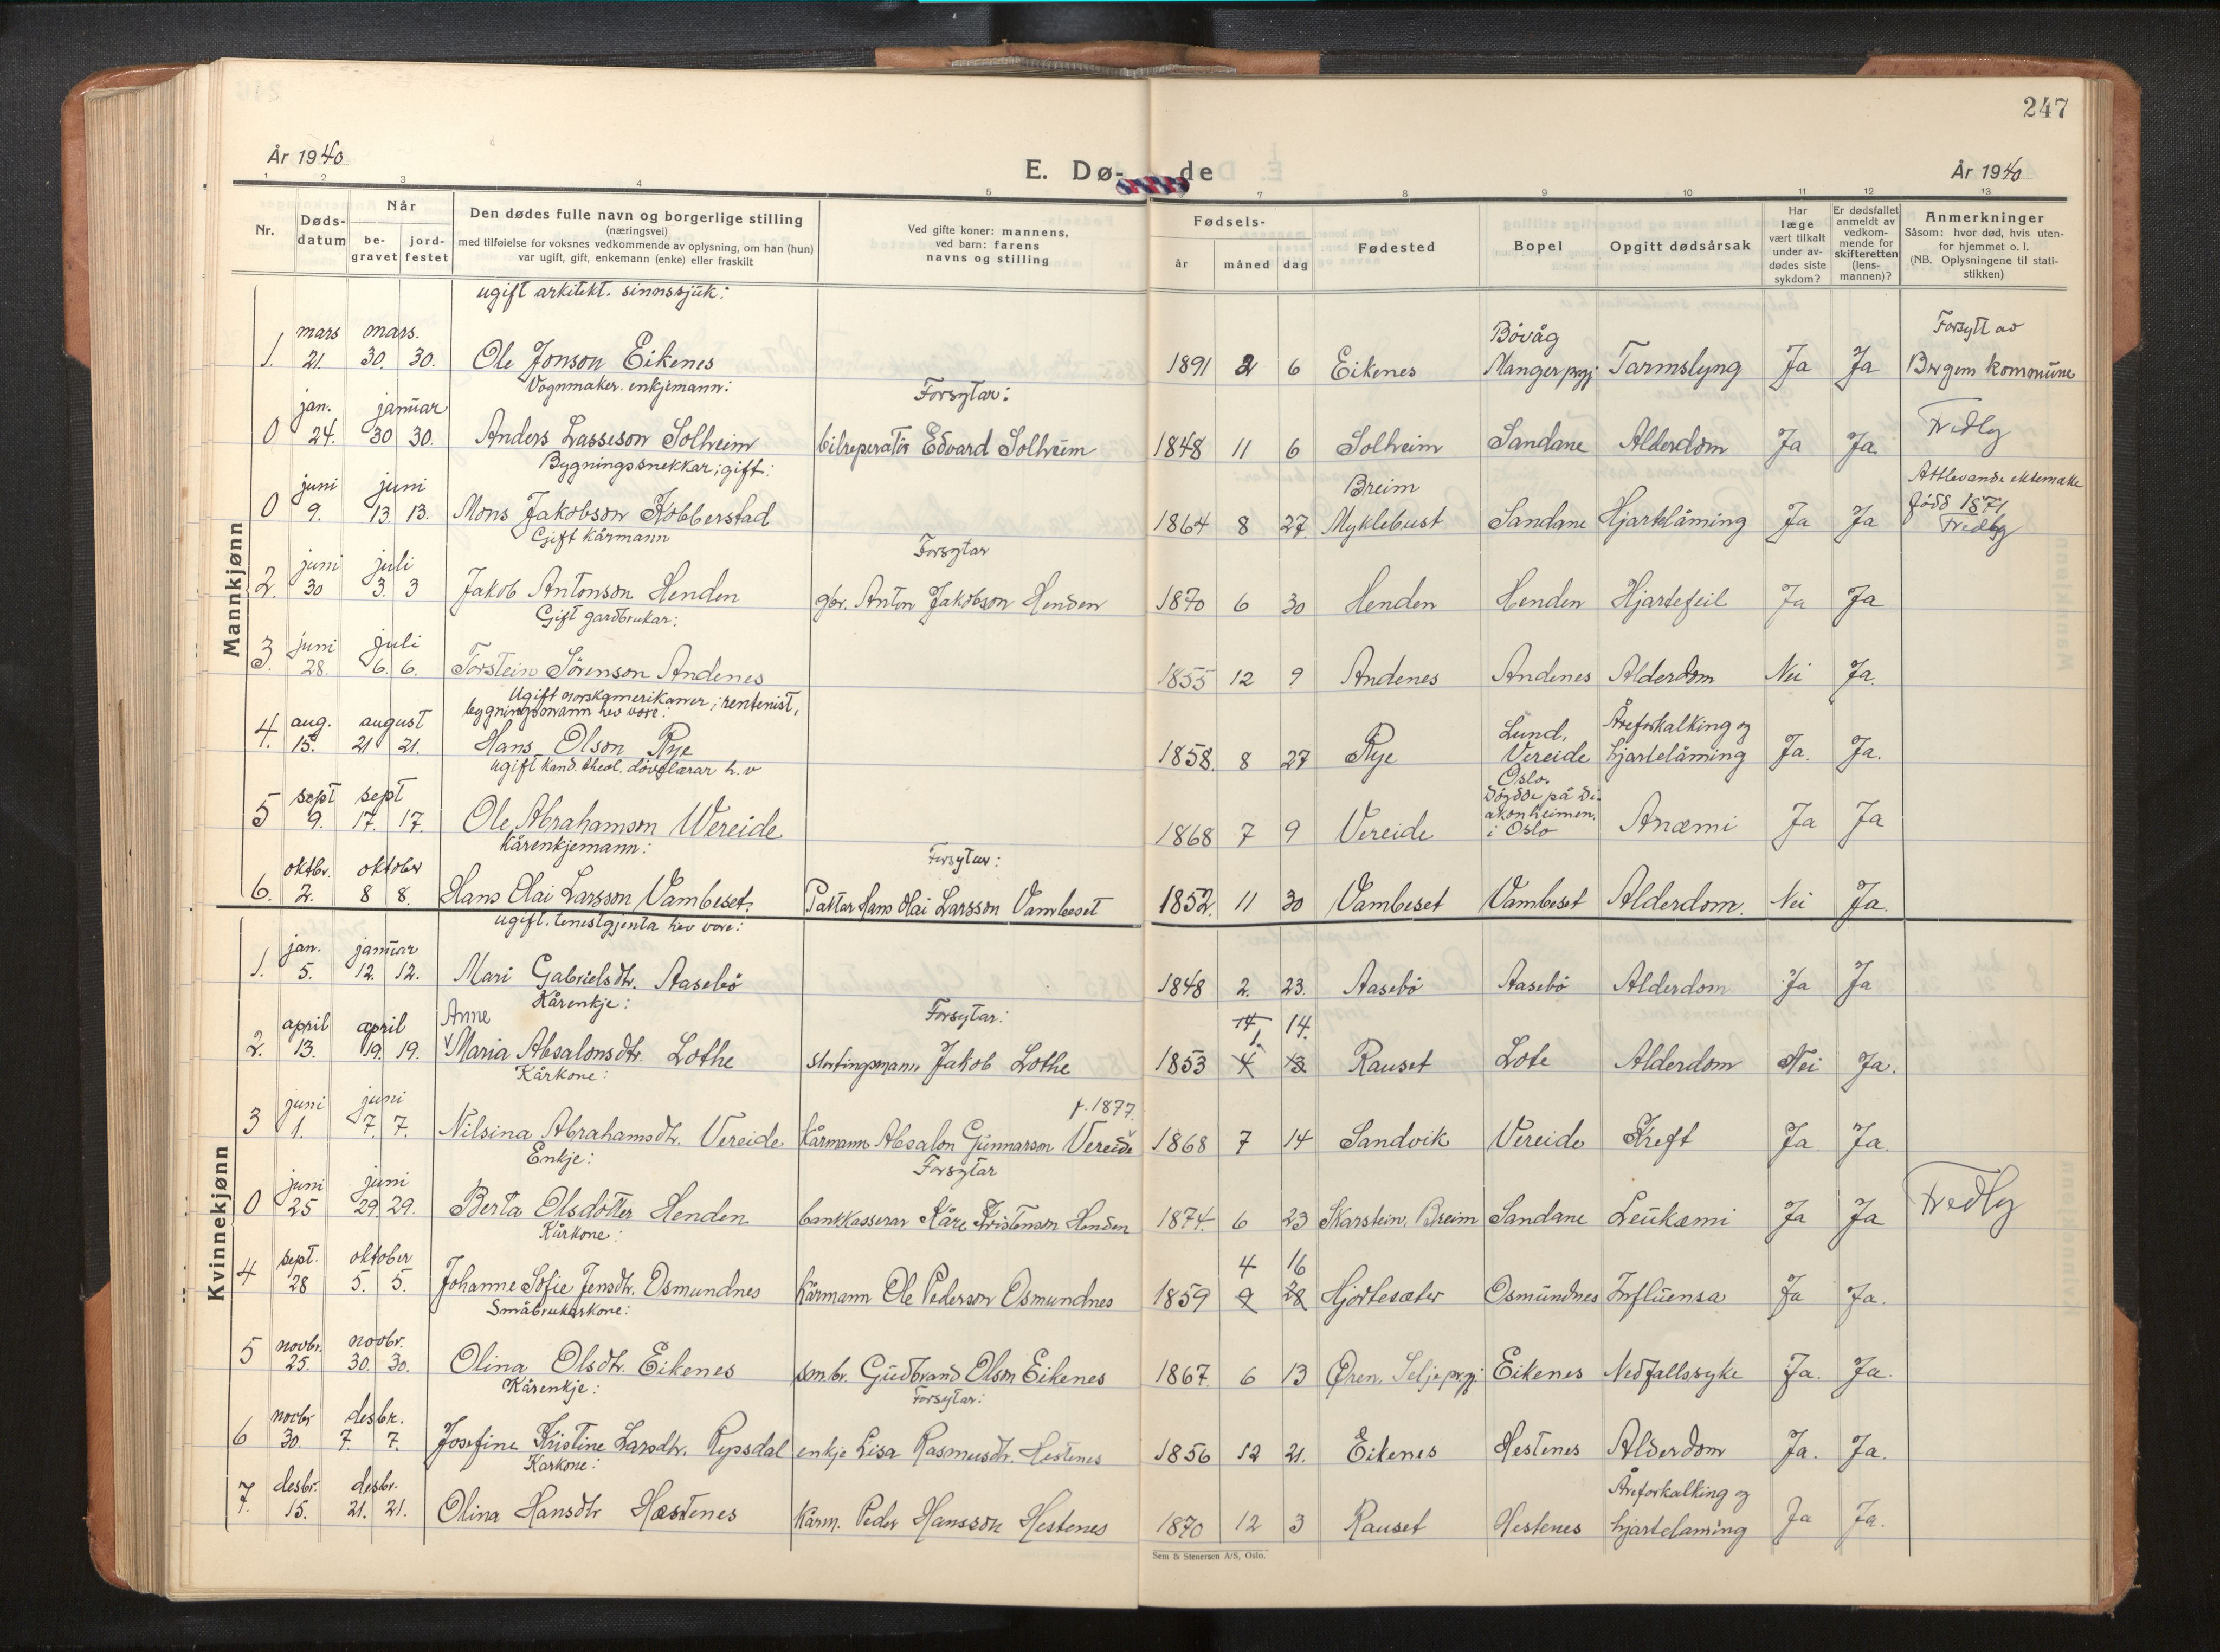 247
År 1940
E. Dø- de
År 1940
1 2 3 4 5 7 8 9 10 11 12 13
Nr.
Døds-
datum
Når
be-
gravet
jord-
festet
Den dødes fulle navn og borgerlige stilling
(næringsvei)
med tilføielse for voksnes vedkommende av oplysning, om han (hun)
var ugift, gift, enkemann (enke) eller fraskilt
Ved gifte koner: mannens,
ved barn: farens
navns og stilling
Fødsels-
år måned dag
Fødested
Bopel
Opgitt dødsårsak
Har
læge
vært tilkalt
under av-
dødes siste
sykdom?
Er dødsfallet
anmeldt av
vedkom-
mende for
skifteretten
(lens-
mannen)?
Anmerkninger
Såsom: hvor død, hvis uten-
for hjemmet o. l.
(NB. Oplysningene til stati-
stikken)
Mannkjønn
ugift arkitekt. sinnssjuk:
mars mars. Bövåg Forsytt av
1. 21. 30. 30. Ole Jonson Eikenes 1891 2 6 Eikenes Manger prgj Tarmslyng Ja Ja Bergens kommune
Vognmaker. enkjemann: Forsytar:
jan. januar
0 24. 30 30. Anders Lasseson Solheim bilreperatör Edvard Solheim 1848 11 6 Solheim Sandane Alderdom Ja Ja
Bygningssnekkar; gift: Attlevande ektemake
juni juni Breim født 1871
0 9. 13. 13. Mons Jakobson Kobberstad 1864 8 27 Myklebust Sandane Hjartelåming Ja Ja
Gift kårmann Forsytar
juni juli
2. 30 3. 3 Jakob Antonson Henden gbr. Anton Jakobson Henden 1870 6 30 Henden Henden Hjartefeil Ja Ja
Gift gardbrukar:
juni juli
3. 28. 6. 6. Torstein Sörenson Andenes 1855 12 9 Andenes Andenes Alderdom Nei Ja.
Ugift norskamerikaner; rentenist,
bygningsmann hev vore:
aug. august Lund, Åreforkalking og
4. 15. 21 21. Hans Olson Rye 1858. 8 27 Rye Vereide hjartelåming Ja. Ja.
ugift kand. theol. døvelærar h.v Oslo.
sept sept Döydde på Di-
akonheimen.
5 9. 17. 17. Ole Abrahamson Wereide 1868 7 9 Vereide i Oslo Anæmi Ja Ja
Kårenkjemann: Forsytar:
oktbr. oktober
6. 2. 8 8. Hans Olai Larsson Vambeset. Hans Olai Larsson Vambeset 1852. 11 30 Vambeset Vambeset Alderdom. Nei Ja.
Kvinnekjønn
ugift. tenestgjenta hev vore:
jan. januar
1. 5. 12. 12. Mari Gabrielsdtr. Aasebö 1848 2. 23. Aasebö Aasebö Alderdom Ja Ja
Kårenkje: Forsytar:
april april Anne 14 14.
2. 13. 19. 19. Maria Absalonsdtr. Lothe stortingsmann Jakob Lothe 1853 4 1. 13 Rauset Lote Alderdom Nei Ja.
Kårkone:
juni juni f. 1877.
3 1. 7. 7. Nilsina Abrahamsdtr. Vereide Kårmann Absalon Gunnarson Vereide 1868 7 14 Sandvik Vereide Kreft Ja Ja.
Enkje: Forsytar
juni juni
0 25 29 29. Berta Olsdotter Henden bankkasserar Kåre Kristenson Henden 1874. 6 23 Skarstein, Breim Sandane Leukæmi Ja Ja
Kårkone:
sept. oktober 4 16
4 28 5. 5. Johanne Sofie Jensdtr. Osmundnes Kårmann Ole Pederson Osmundnes 1859 9 28 Hjortesæter Osmundnes Influensa Ja Ja.
Småbrukarkone:
novbr. novbr.
5 25. 30. 30. Olina Olsdtr. Eikenes sm.br. Gudbrand Olson Eikenes 1867. 6 13 Øren, Selje prgj. Eikenes Nedfallssyke Ja. Ja.
Kårenkje: Forsytar:
novbr desbr.
6 30. 7 7. Josefine Kristine Larsdtr. Rypsdal enkje Lisa Rasmusdtr. Hestenes 1856 12 21. Eikenes Hestenes Alderdom Ja. Ja.
Kårkone:
desbr. desbr. Åreforkalking og
7. 15. 21. 21. Olina Hansdtr Hestenes Kårm. Peder Hansson Hestenes 1870 12 3 Rauset Hestenes hjartelaming Ja Ja.
Sem & Stenersen A/S, Oslo.